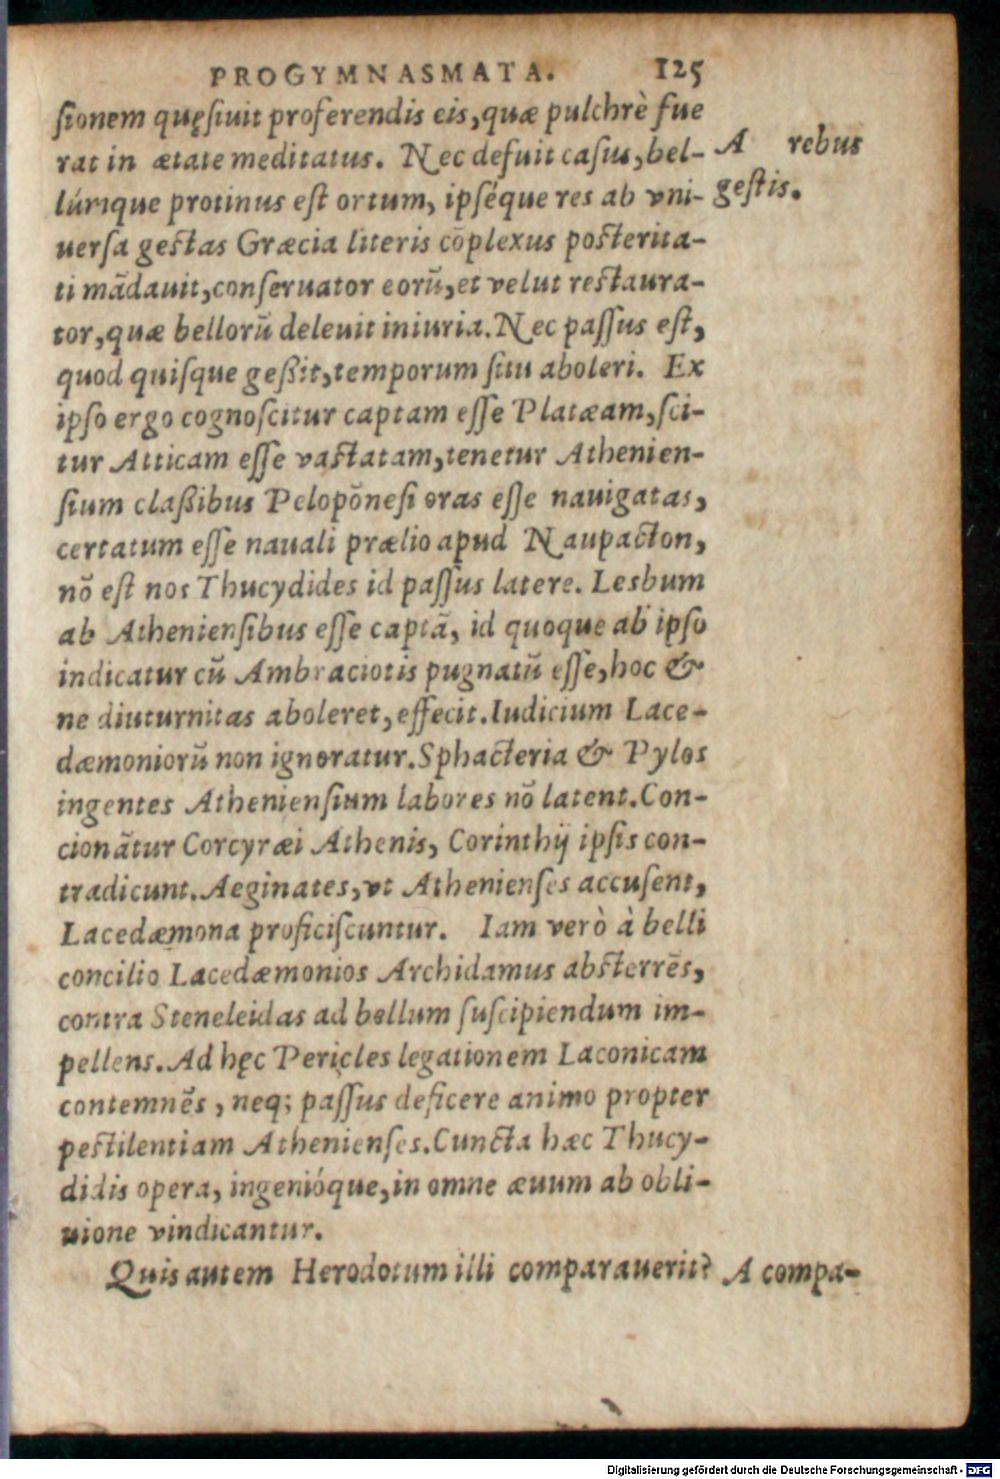 PROGYMNASMATA. 125
ſionem quęſiuit proferendis eis, quæ pulchrè fue
rat in ætate meditatus. Nec defuit caſus, bel-
lúmque protinus eſt ortum, ipſéque res ab vni-
uerſa geſtas Græcia literis cõplexus poſterita-
ti mãdauit, conſeruator eorũ, et velut reſtaura-
tor, quæ bellorũ deleuit iniuria. Nec paſſus eſt,
quod quiſque geßit, temporum ſitu aboleri. Ex
ipſo ergo cognoſcitur captam eſſe Platæam, ſci-
tur Atticam eſſe vaſtatam, tenetur Athenien-
ſium claßibus Pelopõneſi oras eſſe nauigatas,
certatum eſſe nauali prælio apud Naupacton,
nõ eſt nos Thucydides id paſſus latere. Lesbum
ab Athenienſibus eſſe captã, id quoque ab ipſo
indicatur cũ Ambraciotis pugnatũ eſſe, hoc &
ne diuturnitas aboleret, effecit. Iudicium Lace-
dæmoniorũ non ignoratur. Sphacteria & Pylos
ingentes Athenienſium labores nõ latent. Con-
cionãtur Corcyræi Athenis, Corinthij ipſis con-
tradicunt. Aeginates, vt Athenienſes accuſent,
Lacedæmona proficiſcuntur. Iam verò à belli
concilio Lacedæmonios Archidamus abſterrẽs,
contra Steneleidas ad bellum ſuſcipiendum im-
pellens. Ad hęc Pericles legationem Laconicam
contemnẽs, neq; paſſus deficere animo propter
peſtilentiam Athenienſes. Cuncta hæc Thucy-
didis opera, ingenióque, in omne æuum ab obli-
uione vindicantur.
Quis autem Herodotum illi comparauerit?
A rebus
geſtis.
A compa-
Digitalisierung gefördert durch die Deutsche Forschungsgemeinschaft - DFG